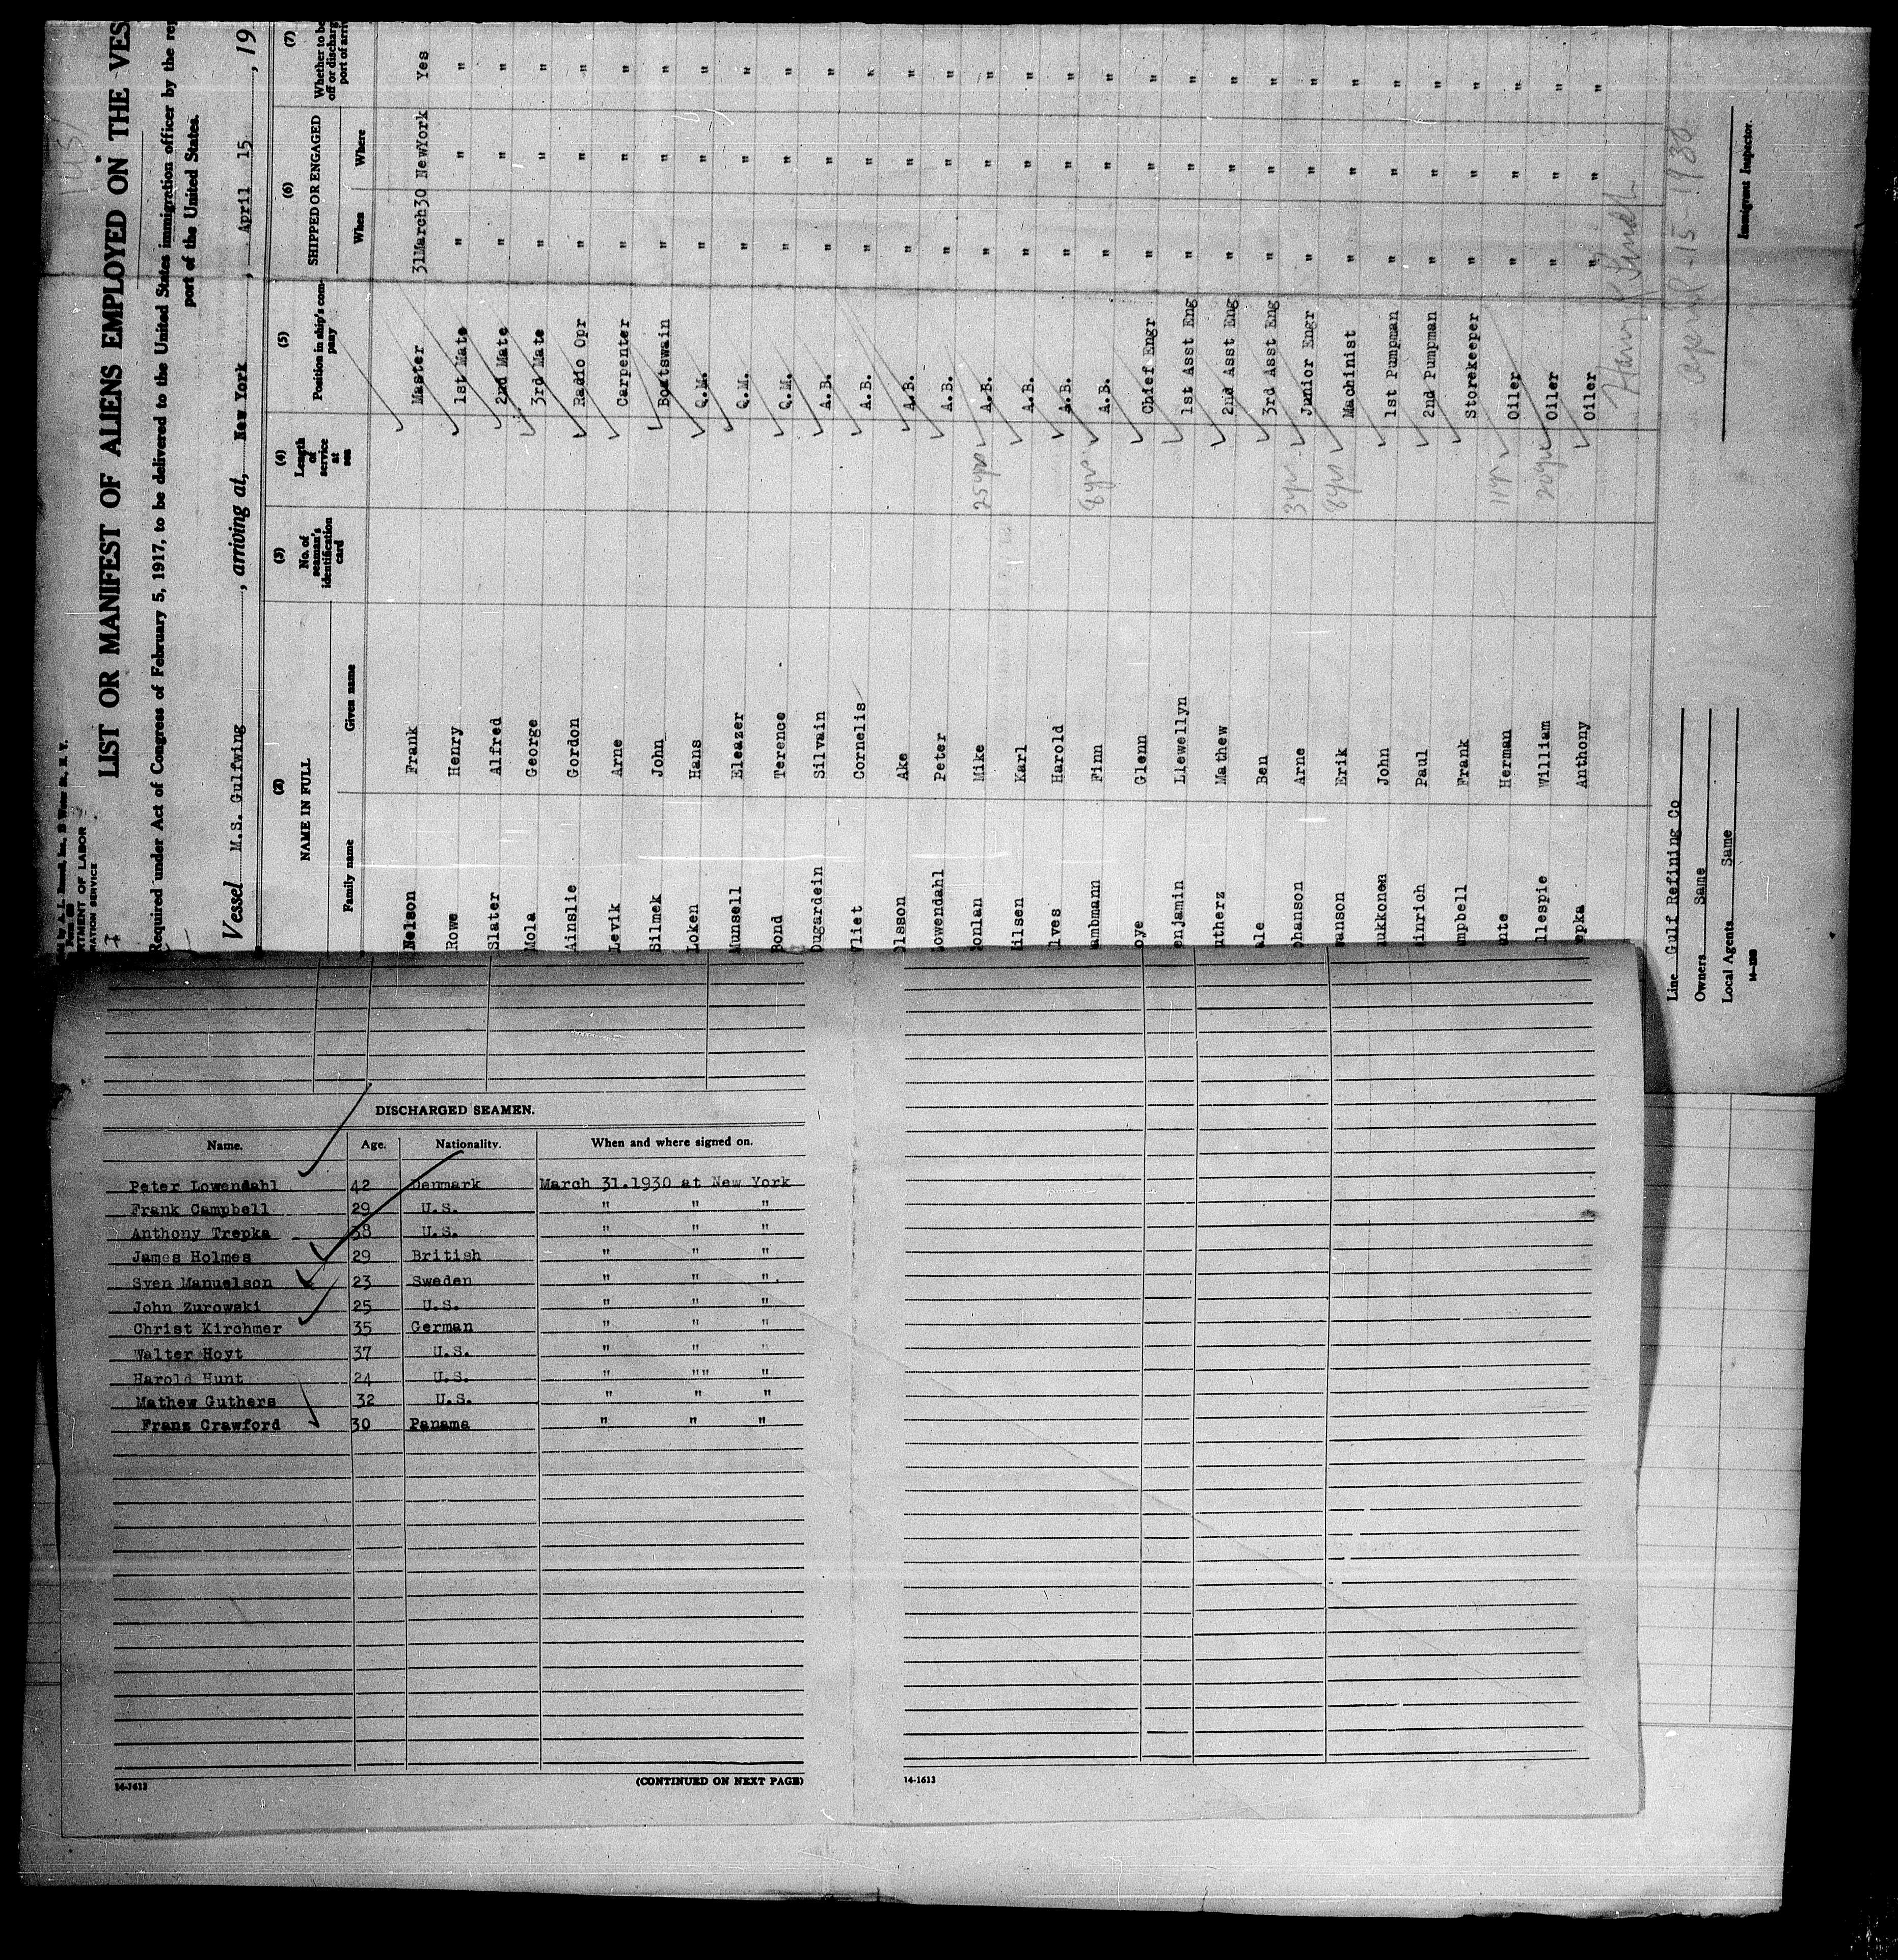 LIST OR MANIFEST OF ALIENS EMPLOYED ON THE VES
Required under Act of Congress of February 5, 1917, to be delivered to the United States immigration officer by the re
port of the United States.
Vessel M.S. Gulfwing, arriving at, New York, April 15, 19
(2) (3) (4) (5) (6) (7)
NAME IN FULL No. of seaman's identification card Length of service at sea Position in ship's company SHIPPED OR ENGAGED Whether to be off or discharg port of arri
Family name Given name When Where
Nelson Frank Master 31March30 NewYork Yes
Rowe Henry 1st Mate " " "
Slater Alfred 2nd Mate " " "
Mola George 3rd Mate " " "
Ainslie Gordon Radio Opr " " "
Levik Arne Carpenter " " "
Silmek John Boatswain " " "
Loken Hans Q.M. " " "
Munsell Eleazer Q.M. " " "
Bond Terence Q.M. " " "
Dugardein Silvain A.B. " " "
Vliet Cornelis A.B. " " "
Olsson Ake A.B. " " "
owendahl Peter A.B. " " "
onlan Mike 25yrs A.B. " " "
ilsen Karl A.B. " " "
lves Harold A.B. " " "
ambmann Finn 8yrs A.B. " " "
oye Glenn Chief Engr " " "
enjamin Llewellyn 1st Asst Eng " " "
utherz Mathew 2nd Asst Eng " " "
ale Ben 3rd Asst Eng " " "
ohanson Arne 3yrs Junior Engr " " "
wanson Erik 8yrs Machinist " " "
ukkonen John 1st Pumpman " " "
inrich Paul 2nd Pumpman " " "
mpbell Frank Storekeeper " " "
uite Herman 11yr Oiler " " "
llespie William 20yrs Oiler " " "
epka Anthony Oiler " " "
April-15-1930
Line Gulf Refining Co
Owners Same
Local Agents Same
Immigrant Inspector.
DISCHARGED SEAMEN.
Name. Age. Nationality. When and where signed on.
Peter Lowendahl 42 Denmark March 31.1930 at New York
Frank Campbell 29 U.S. " " "
Anthony Trepka 38 U.S. " " "
James Holmes 29 British " " "
Sven Manuelson 23 Sweden " " "
John Zurowski 25 U.S. " " "
Christ Kirchmer 35 German " " "
Walter Hoyt 37 U.S. " " "
Harold Hunt 24 U.S. " "" "
Mathew Guthers 32 U.S. " " "
Franz Crawford 30 Panama " " "
14-1613 (CONTINUED ON NEXT PAGE) 14-1613